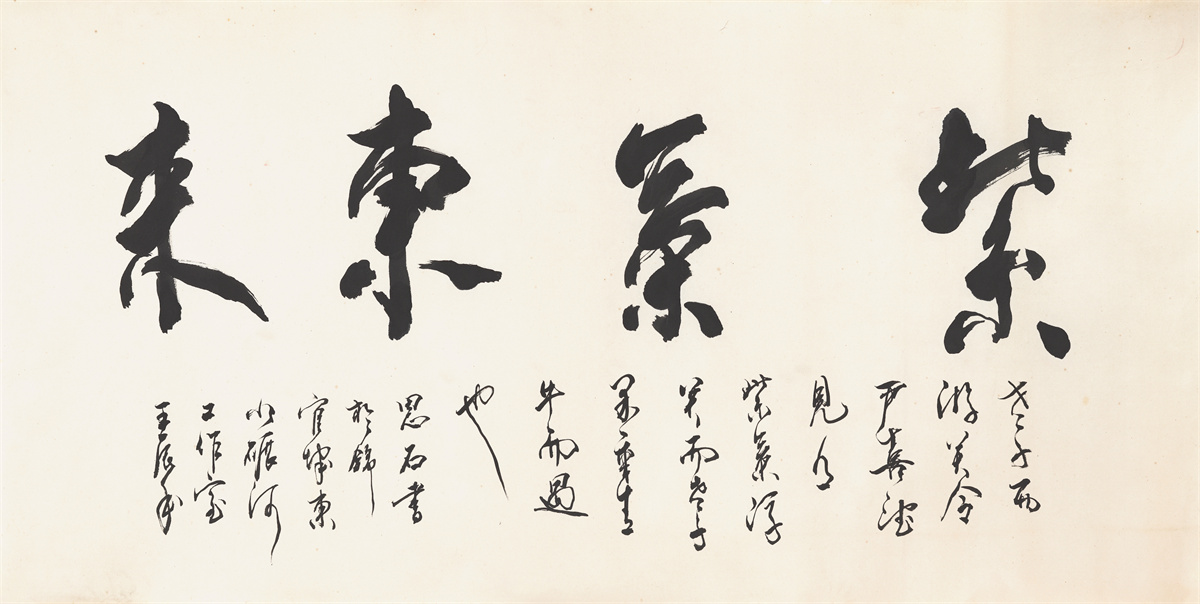 紫氣東來
老子西
游关令
尹喜望
見有
紫氣浮
关而老子
果乘青
牛而過
也
思石書
於錦
官城東
北碾河
工作室
壬辰